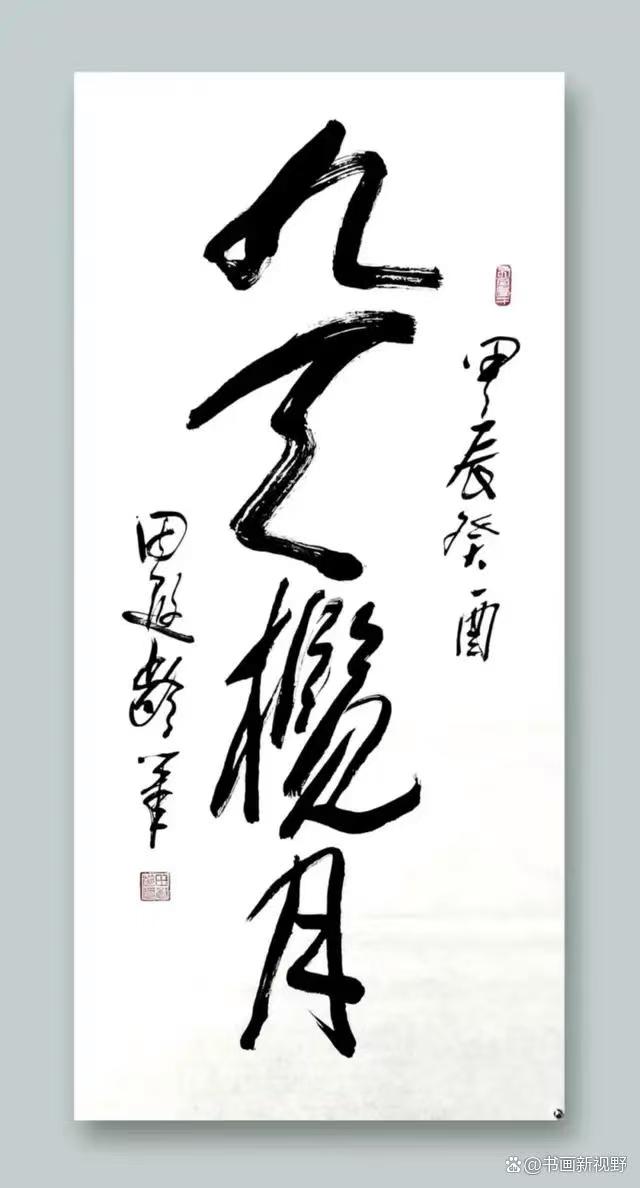 甲辰癸酉
九天揽月
田遐龄筆
@书画新视野